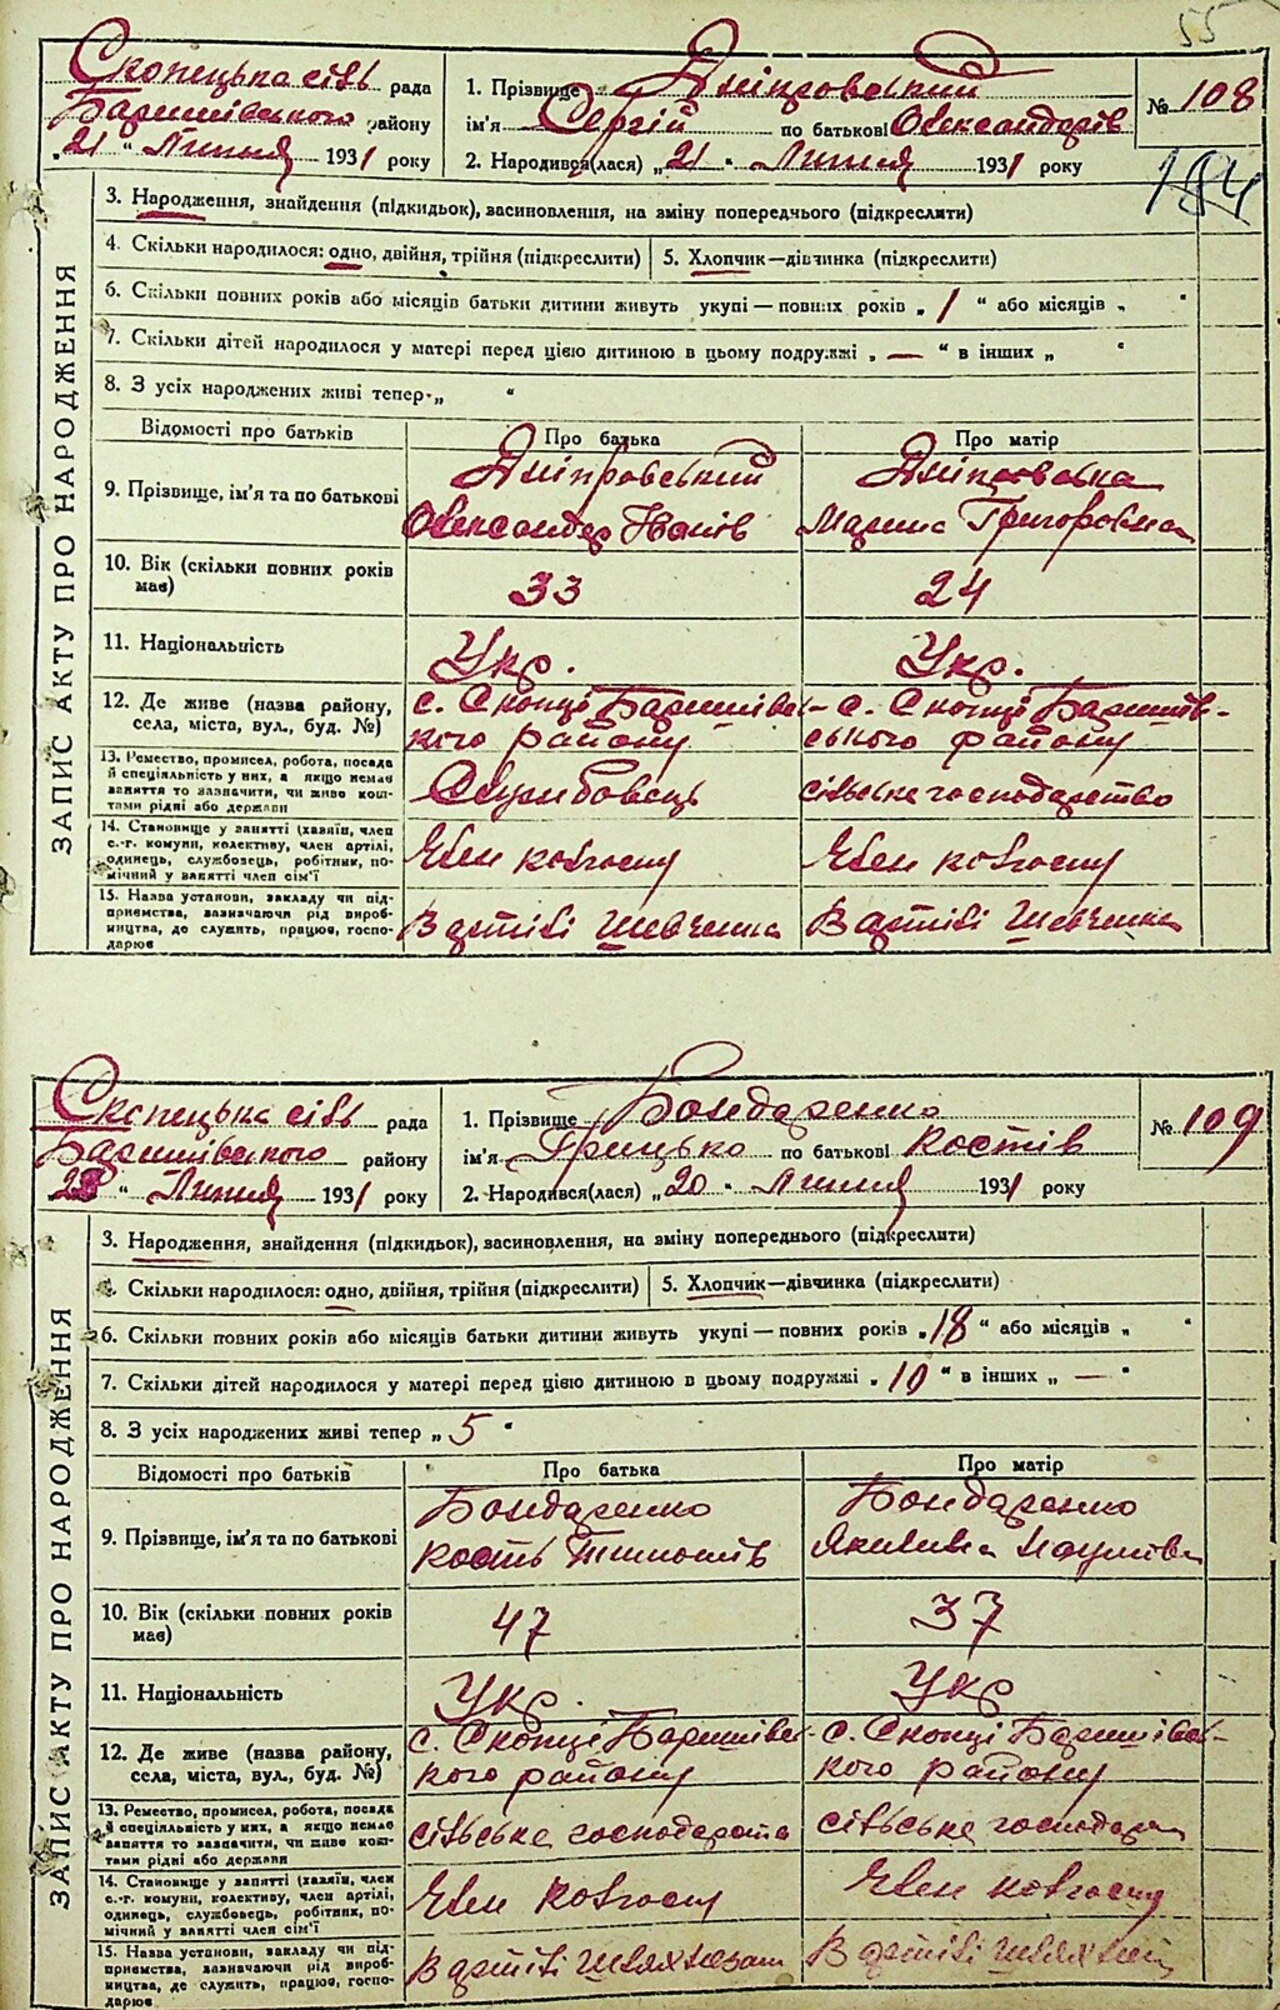 55
Скопецька сіль рада
Баришівського району
„21“ Липня 1931 року
1. Прізвище Дніпровський
ім'я Сергій по батькові Олександрів
2. Народився(лася) „21“ Липня 1931 року
№ 108
184
ЗАПИС АКТУ ПРО НАРОДЖЕННЯ
3. Народження, знайдення (підкидьок), засиновлення, на зміну попереднього (підкреслити)
4. Скільки народилося: одно, двійня, трійня (підкреслити)
5. Хлопчик—дівчинка (підкреслити)
6. Скільки повних років або місяців батьки дитини живуть укупі — повних років „1“ або місяців „ “
7. Скільки дітей народилося у матері перед цією дитиною в цьому подружжі „—“ в інших „ “
8. З усіх народжених живі тепер „ “
Відомості про батьків
Про батька
Про матір
9. Прізвище, ім'я та по батькові
Дніпровський
Олександер Іванів
Дніпровська
Марина Григоровна
10. Вік (скільки повних років має)
33
24
11. Національність
Укр.
Укр.
12. Де живе (назва району, села, міста, вул., буд. №)
с. Скопці Баришівсь-
кого району
с. Скопці Баришів-
ського району
13. Ремество, промисел, робота, посада
й спеціяльність у них, а якщо немає
заняття то зазначити, чи живе кош-
тами рідні або держави
Службовець
сільське господарство
14. Становище у занятті (хазяїн, член
с.-г. комуни, колективу, член артілі,
одинець, службовець, робітник, по-
мічний у занятті член сім'ї
Член колгоспу
Член колгоспу
15. Назва установи, закладу чи під-
приємства, зазначаючи рід вироб-
ництва, де служить, працює, госпо-
дарює
В артілі Шевченка
В артілі Шевченка
Скопецька сіль рада
Баришівського району
„23“ Липня 1931 року
1. Прізвище Бондаренко
ім'я Грицько по батькові Костів
2. Народився(лася) „20“ Липня 1931 року
№ 109
ЗАПИС АКТУ ПРО НАРОДЖЕННЯ
3. Народження, знайдення (підкидьок), засиновлення, на зміну попереднього (підкреслити)
4. Скільки народилося: одно, двійня, трійня (підкреслити)
5. Хлопчик—дівчинка (підкреслити)
6. Скільки повних років або місяців батьки дитини живуть укупі — повних років „18“ або місяців „ “
7. Скільки дітей народилося у матері перед цією дитиною в цьому подружжі „10“ в інших „—“
8. З усіх народжених живі тепер „5“
Відомості про батьків
Про батька
Про матір
9. Прізвище, ім'я та по батькові
Бондаренко
Кость
Бондаренко
Якилина Наумівна
10. Вік (скільки повних років має)
47
37
11. Національність
Укр.
Укр
12. Де живе (назва району, села, міста, вул., буд. №)
с. Скопці Баришівсь-
кого району
с. Скопці Баришівсь-
кого району
13. Ремество, промисел, робота, посада
й спеціяльність у них, а якщо немає
заняття то зазначити, чи живе кош-
тами рідні або держави
сільське господарств
сільське господар
14. Становище у занятті (хазяїн, член
с.-г. комуни, колективу, член артілі,
одинець, службовець, робітник, по-
мічний у занятті член сім'ї
Член колгоспу
Член колгоспу
15. Назва установи, закладу чи під-
приємства, зазначаючи рід вироб-
ництва, де служить, працює, госпо-
дарює
В артілі
В артілі